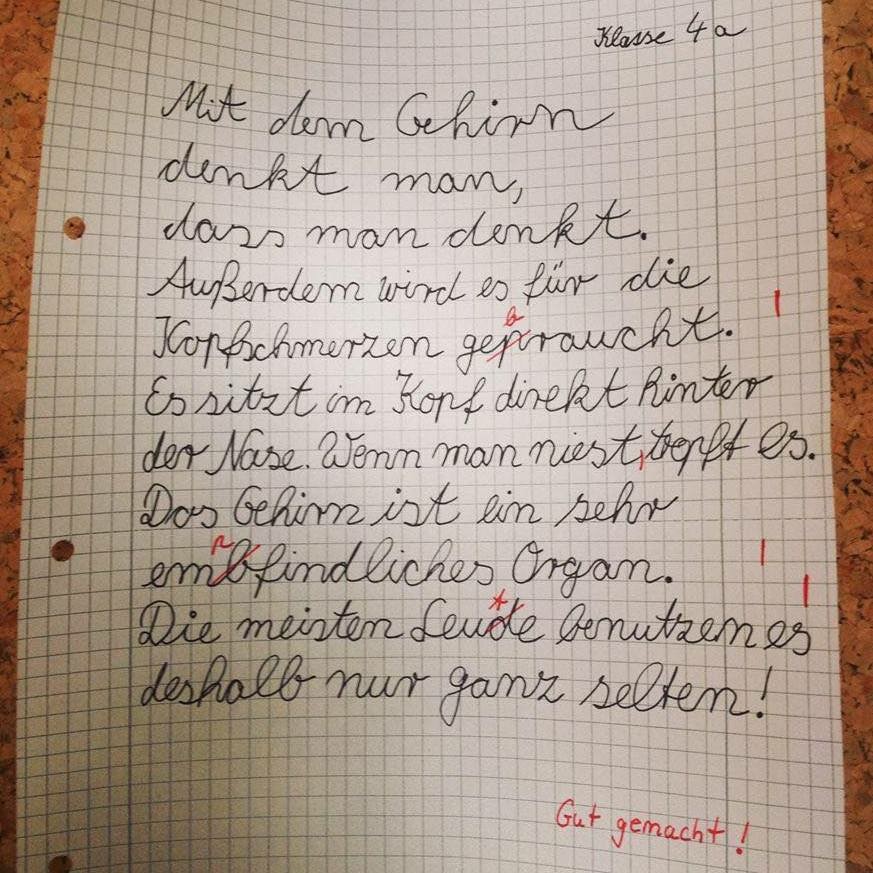 Klasse 4a
Mit dem Gehirn
denkt man,
dass man denkt.
Außerdem wird es für die
b
Kopfschmerzen gepraucht.
Es sitzt im Kopf direkt hinter
der Nase. Wenn man niest, tropft es.
Das Gehirn ist ein sehr
p
embfindliches Organ.
t
Die meisten Leude benutzen es
deshalb nur ganz selten!
Gut gemacht!